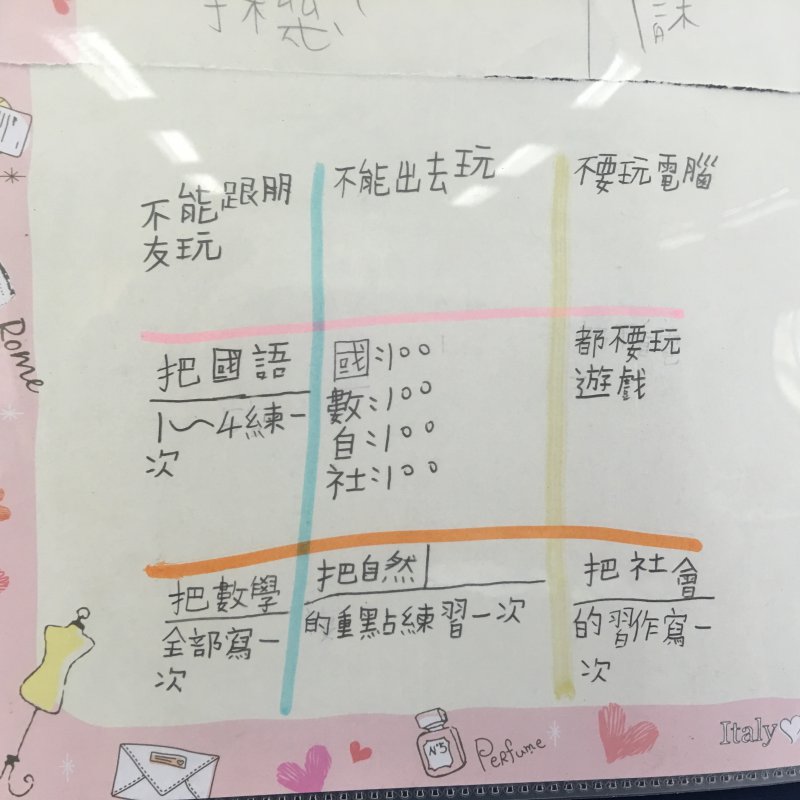 不能跟朋
友玩
不能出去玩
不要玩電腦
把國語
1~4練一
次
國:100
數:100
自:100
社:100
都不要玩
遊戲
把數學
全部寫一
次
把自然
的重點練習一次
把社會
的習作寫一
次
Rome
N°5
Perfume
Italy